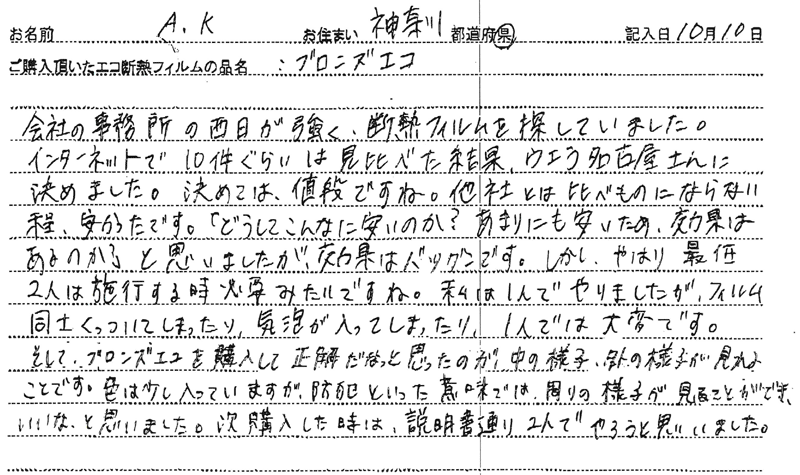 お名前 A.K お住まい 神奈川 都道府県 記入日 10月10日
ご購入頂いたエコ断熱フィルムの品名 : ブロンズエコ
会社の事務所の西日が強く、断熱フィルムを探していました。
インターネットで10件ぐらいは見比べた結果、ウエラ名古屋さんに
決めました。決めては、値段ですね。他社とは比べものにならない
程、安かったです。「どうしてこんなに安いのか？あまりにも安いため、効果は
あるのか」と思いましたが、効果はバツグンです。しかし、やはり最低
2人は施行する時必要みたいですね。私は1人でやりましたが、フィルム
同士くっついてしまったり、気泡が入ってしまったり、1人では大変です。
そして、ブロンズエコを購入して正解だなっと思ったのが、中の様子、外の様子が見れる
ことです。色は少し入っていますが、防犯といった意味では、周りの様子が見ることができ、
いいな、と思いました。次購入した時は、説明書通り2人でやろうと思いいました。